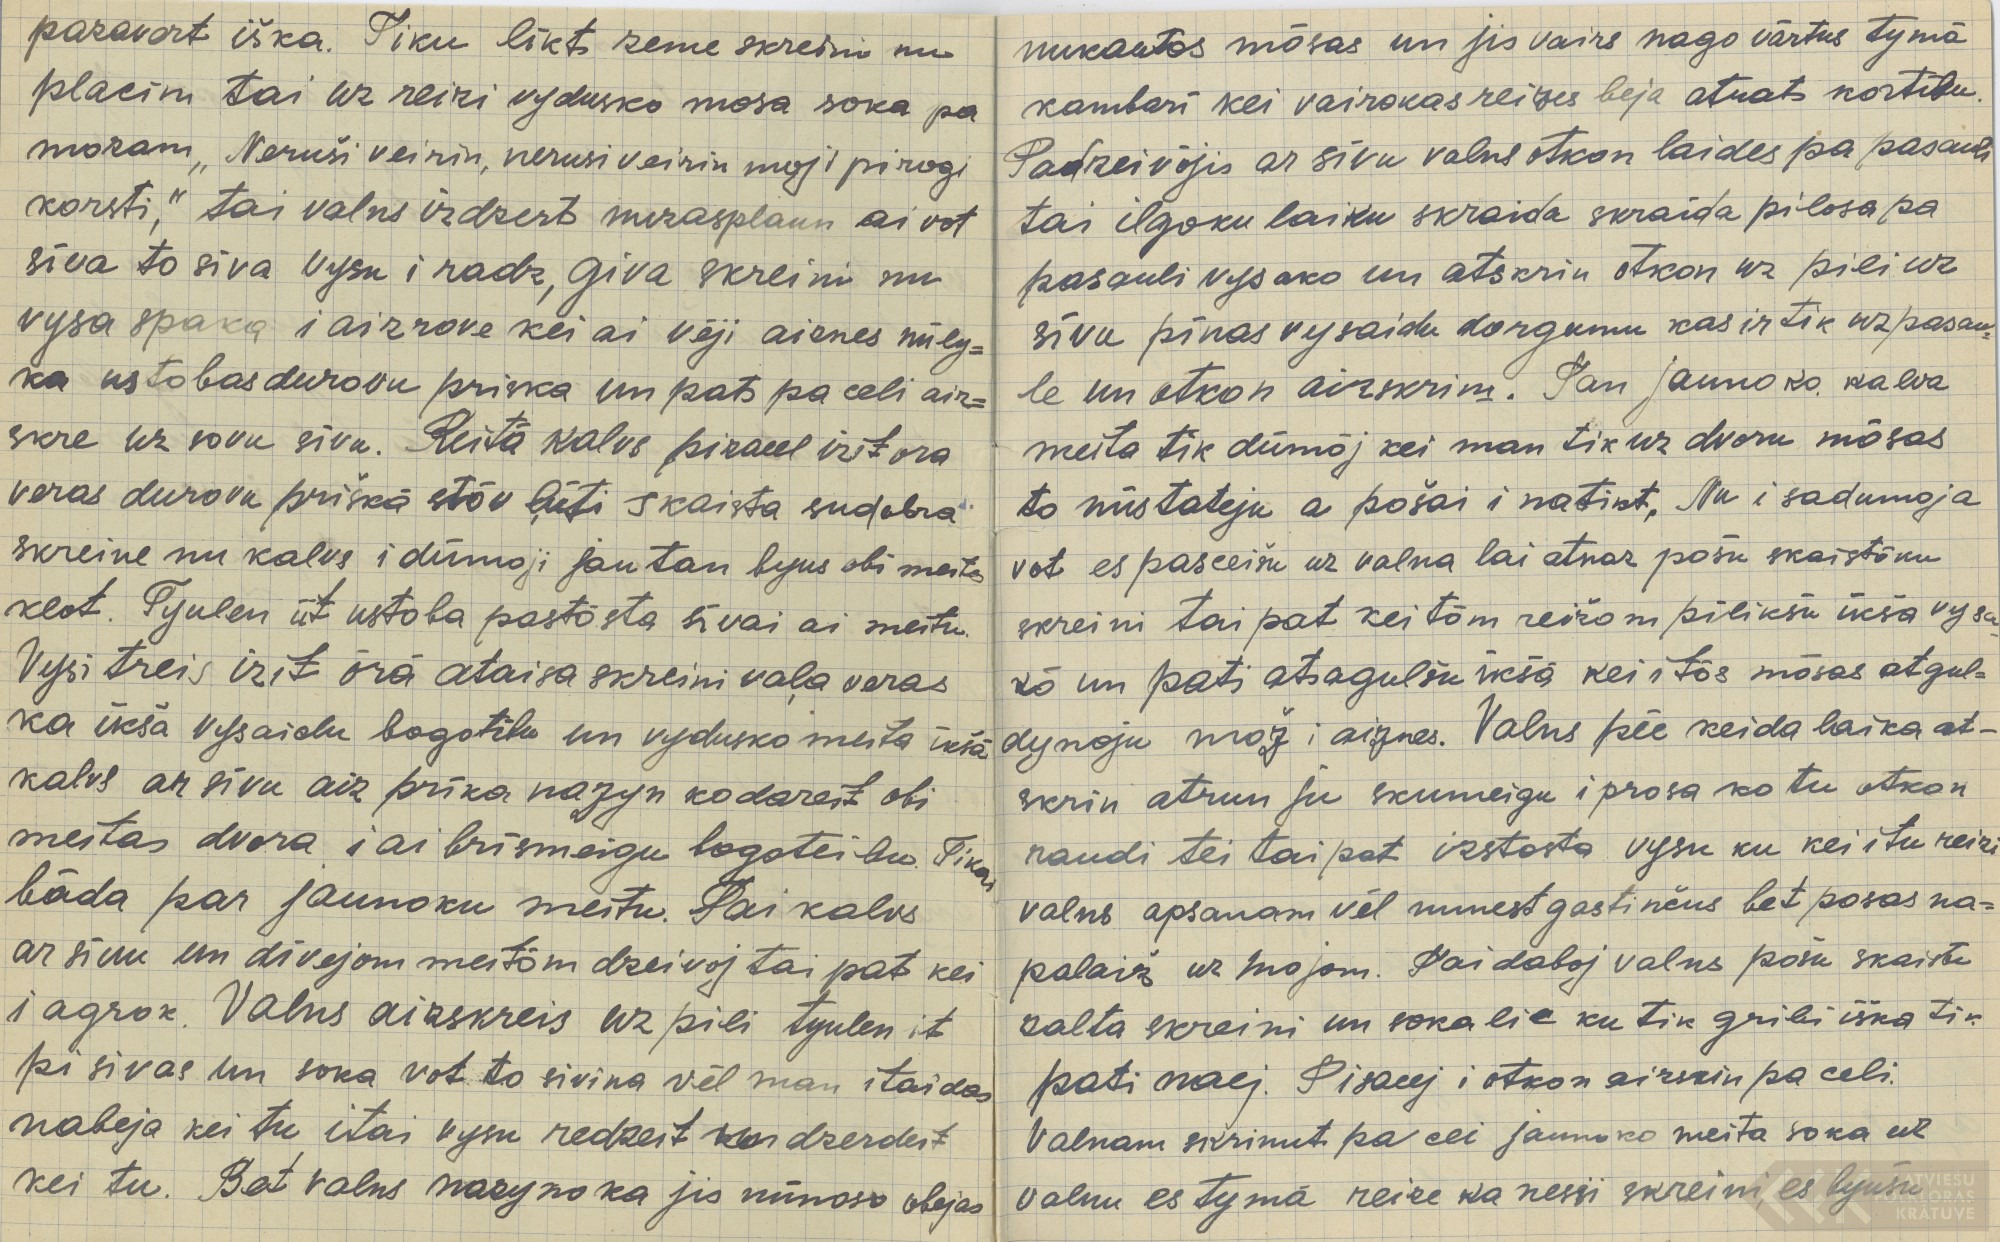 pazavert īška. Tiku līkts zeme skreini nu
placim tai uz reizi vydusko mosa soka pa
mozam „Nerušī veirin, nerusi veirin moji pirogi
korsti," tai valns izdzert nurasplaun ai vot
siva to siva vysu i radz, giva skreini nu
vysa spaka i aizrove kei ai vēji aiznes nūly=
ka ustobas durovu prīska un pats pa celi aiz=
skre uz sovu sīvu. Reitā kalvs pizacel izīt ora
veras durovu prīškā stōv ļūti skaista sudobra
skreine nu kalvs i dūmoji jau tan byus obi meitas
klot. Tyulen īt ustoba pastōsta sīvai ai meitu.
Vysi treis izīt ōrā ataisa skreini vaļa veras
ka īkšā vysaidu bogotību un vydusko meita īkšā
kalvs ar sīvu aiz prīka nazyn ko dareit obi
meitas dvora i ai brīsmeigu bogoteibu. Tikai
bāda par jaunoku meitu. Tai kalvs
ar sīvu un divejom meitōm dzeivoj tai pat kei
i agrok. Valns aizskreis uz pili tyulen it
pi sivas un soka vot to sivina vēl man itaidas
nabeja kei tu itai vysu redzeit un dzerdeit
kei tu. Bet valns nazynoka jis nūnoso obejas
nukautos mōsas un jis vairs nagovārtus tymā
kambarī kei vairokas reizes beja atnats kortību.
Padzeivōjis ar sīvu valns otkon laides pa pasauli
tai ilgoku laiku skraida skraida pilosa pa
pasauli vysako un atskrin otkon uz pili uz
sīvu pīnas vysaidu dorgumu kas ir tik uz pasau=
le un otkon aizskrin. Tan jaunoko kalva
meita tik dūmōj kei man tik uz dvoru mōsas
to nūstateju a pošai i natikt, Nu i sadumoja
vot es pasceišu uz valna lai atnaz pošu skaistōku
skreini tai pat kei tōm reizom pilikšu īkša vysa
kō un pati atsagulšu īkšā kei i tōs mōsas atgul=
dynoju mož i aiznes. Valns pēc keida laika at-
skrin atrun ju skumeigu i prosa ko tu otkon
raudi tei tai pat izstosta vysu ku kei itu reizi
valns apsanam vēl nunest gastinčus bet posas na=
palaiž uz mojom. Tai daboj valns pošu skaistu
zalta skreini un soka lic ku tik gribi īška tik
pati naej. Pisacej i otkon aizskin pa celi.
Valnam skrinut pa cei jaunoko meita soka uz
valnu es tymā reize ka nessi skreini es byušu
LATVIEŠU
FOLKLORAS
KRĀTUVE